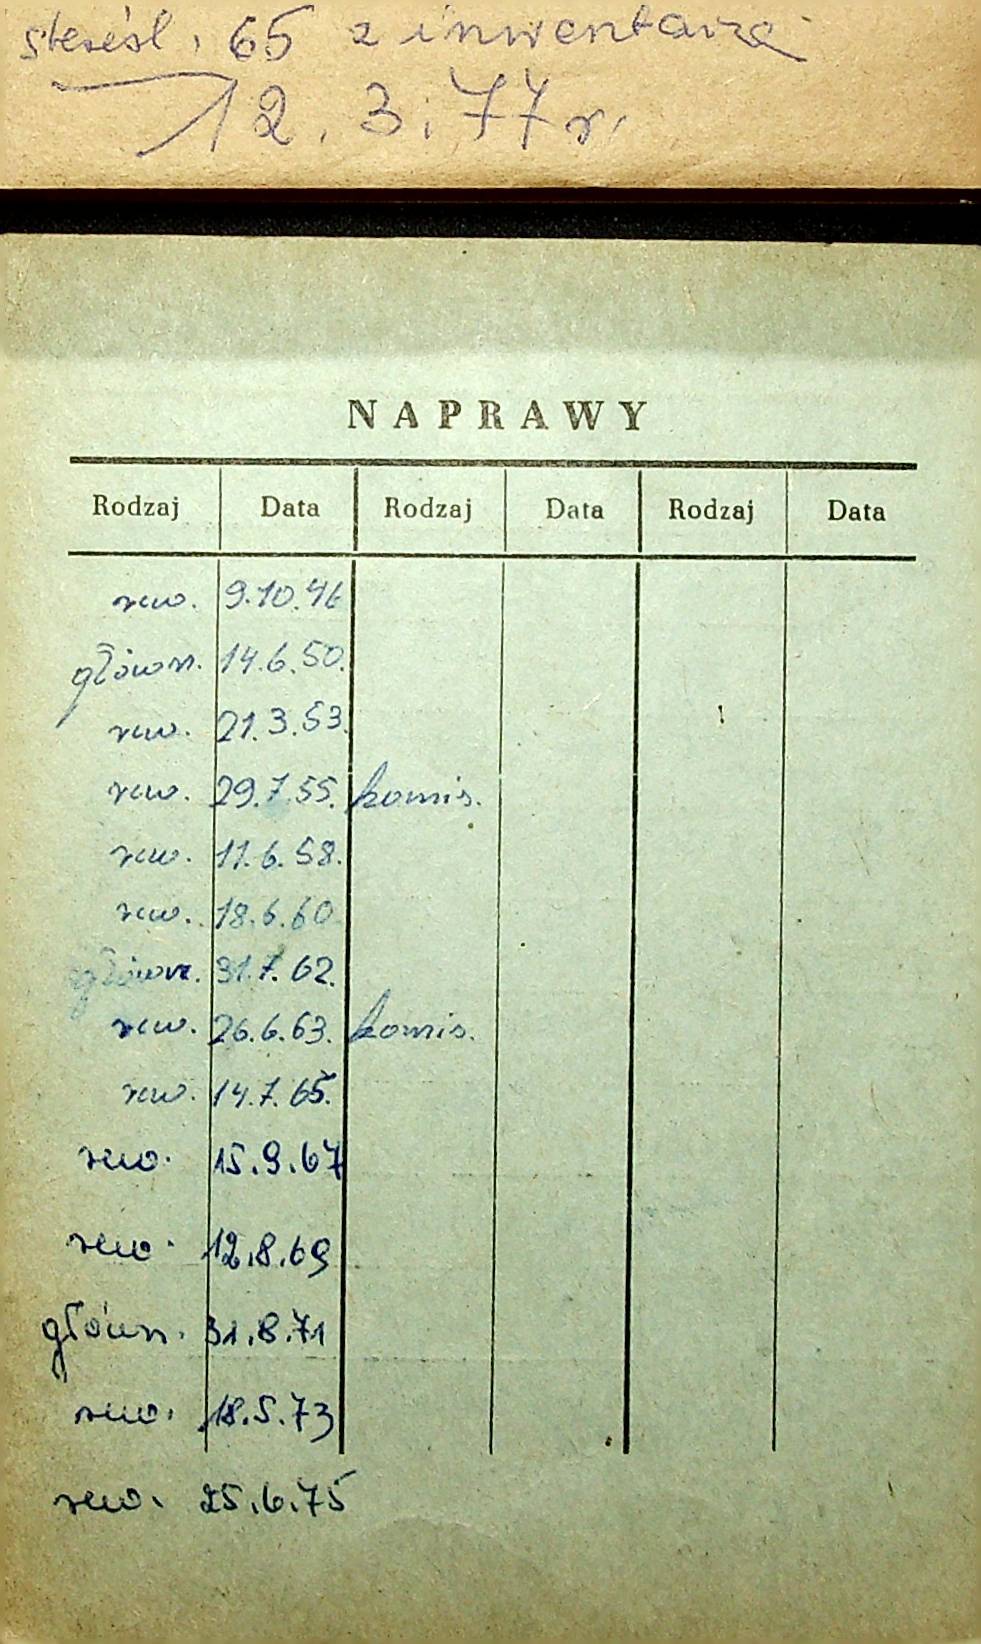 skreśl. 65 z inwentarza
12.3.77 r.
NAPRAWY
Rodzaj Data Rodzaj Data Rodzaj Data
rew. 9.10.46
główn. 14.6.50.
rew. 21.3.53.
rew. 29.7.55. komis.
rew. 11.6.58.
rew. 18.6.60
główn. 31.7.62.
rew. 26.6.63. komis.
rew. 14.7.65.
rew. 15.9.67
rew. 12.8.69
główn. 31.8.71
rew. 18.5.73
rew. 25.6.75